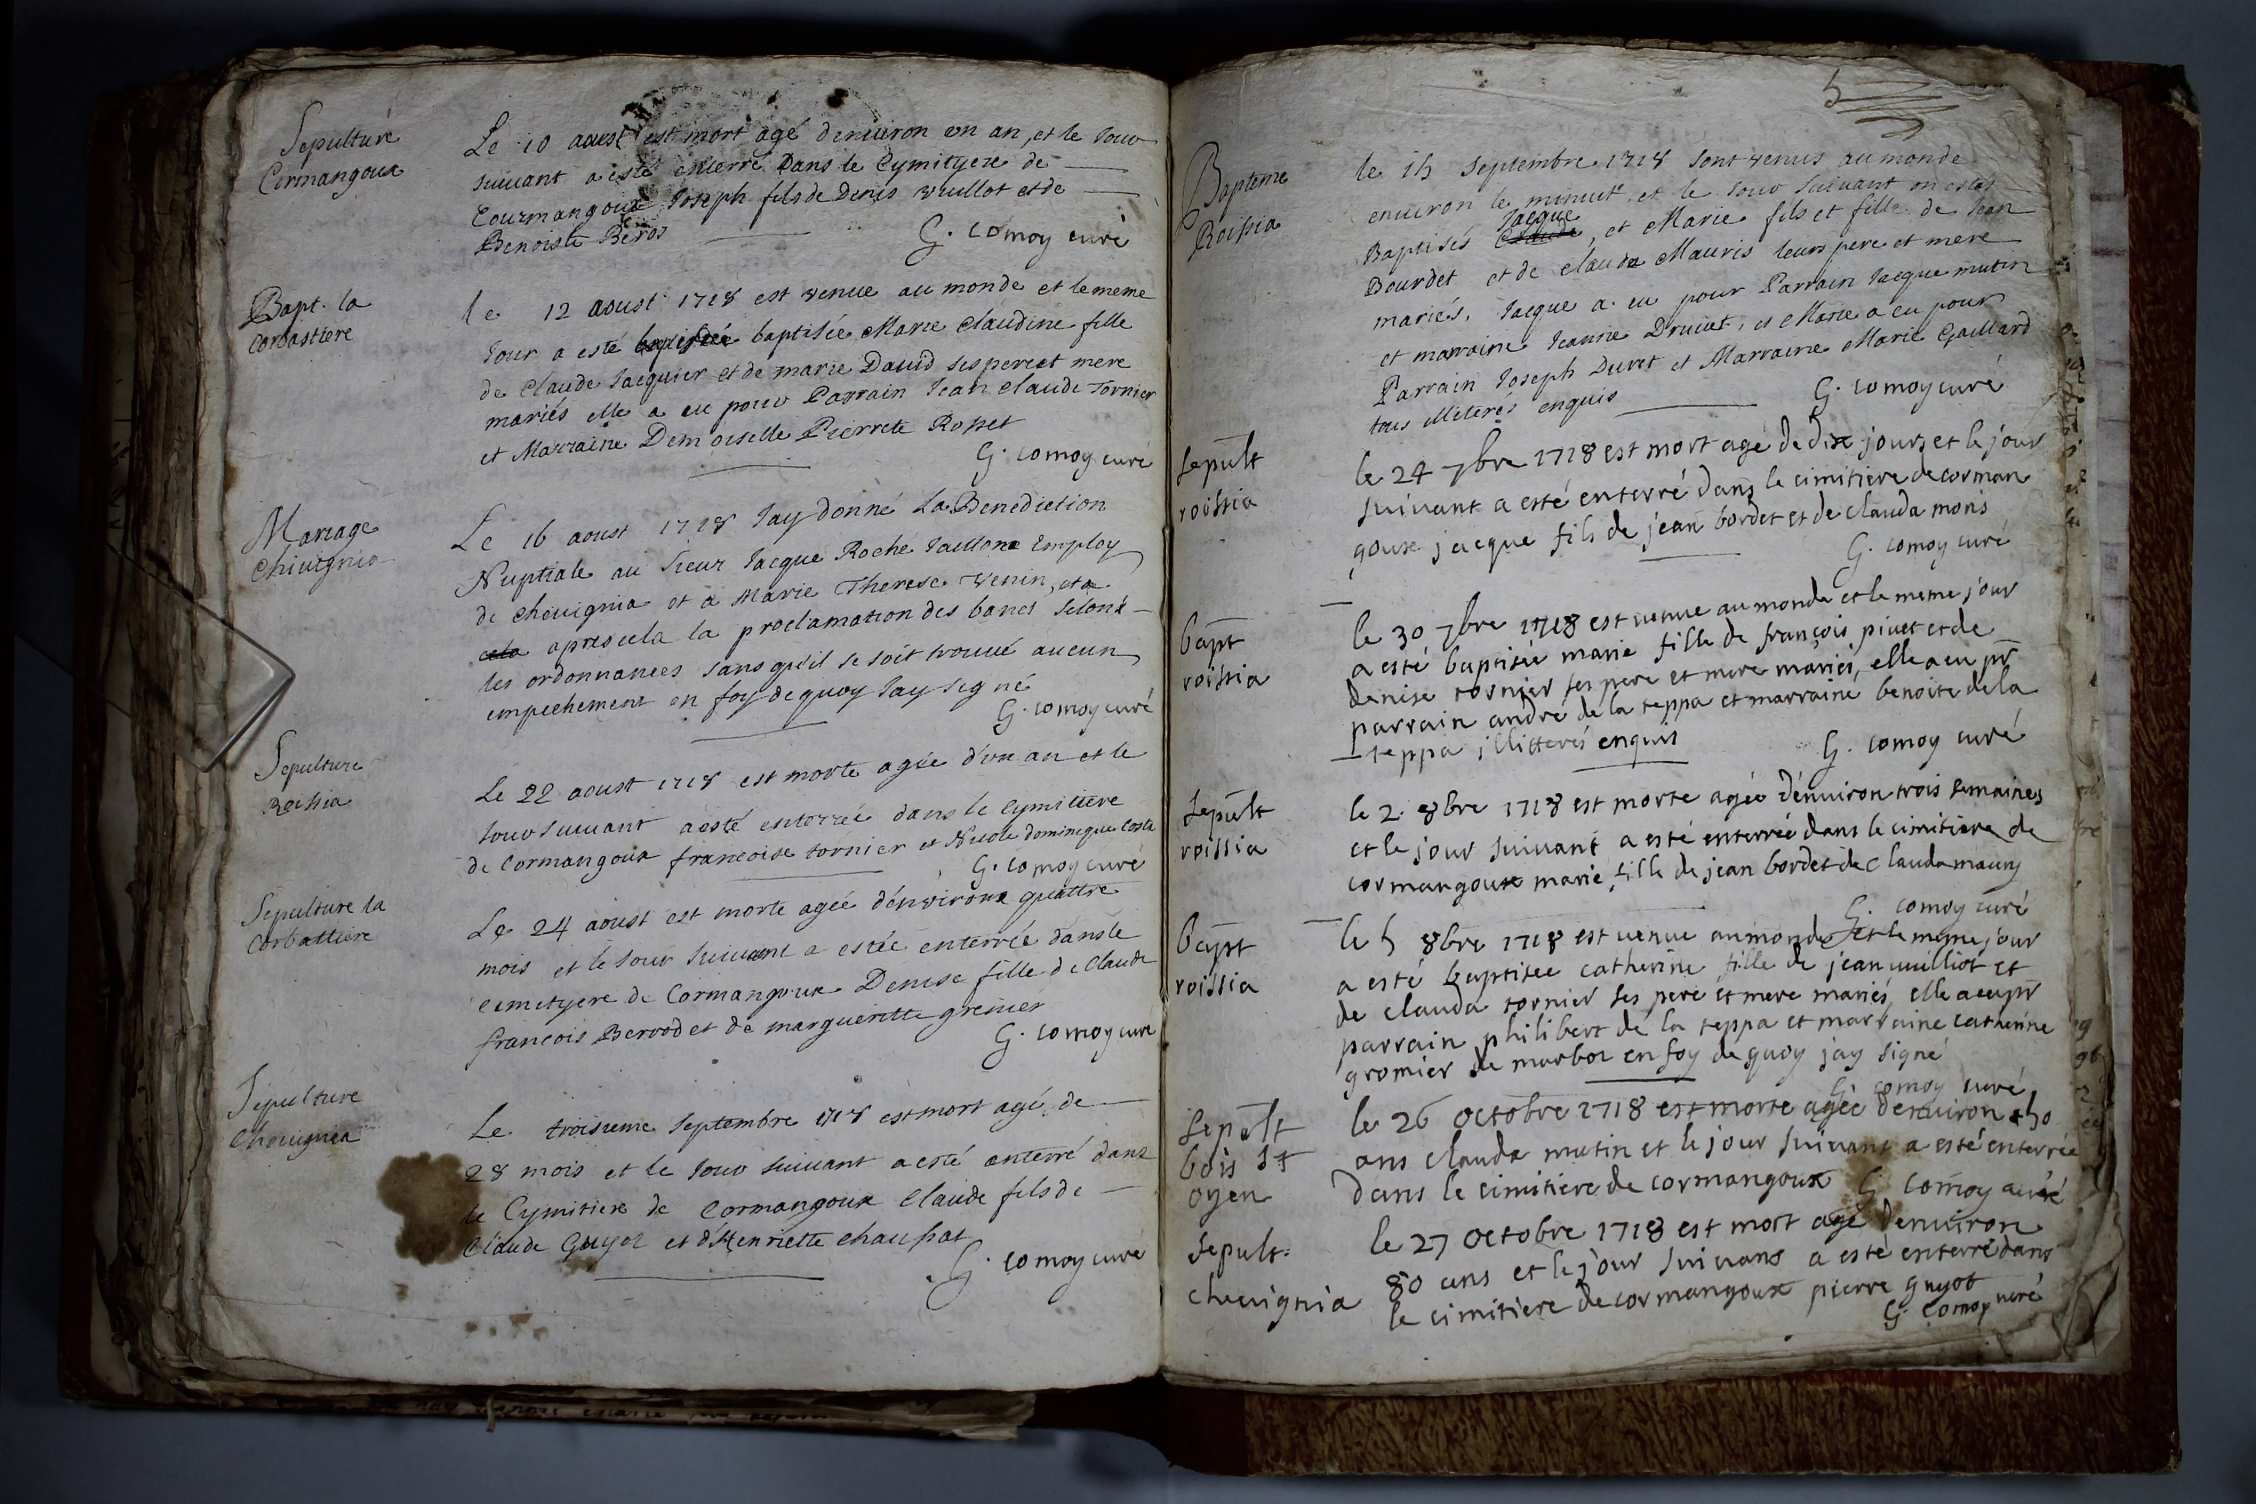 Sepulture
Cormangoux
Le 10 aoust est mort agé denuiron un an, et le Jour
suiuant a esté enterré Dans le Cymityere de
Courmangoux Joseph fils de Denis vuillot et de
Benoiste Beroz
G. comoy curé
Bapt. la
Corbastiere
le 12 aoust 1718 est venue au monde et le meme
Jour a esté baptisée Marie Claudine fille
de Claude Jacquier et de marie Dauid ses pere et mere
mariés elle a eu pour Parrain Jean Claude Tornier
et Marraine Demoiselle Pierrete Rosset
G. comoy curé
Mariage
Cheuignia
Le 16 aoust 1718 Jay donné La Benediction
Nuptiale au Sieur Jacque Roche employ
de cheuignia et a Marie Therese Venin, et a
cela apres cela la proclamation des bancs selon
les ordonnances sans qu'il se soit trouué aucun
empechement en foy de quoy Jay signé
G. comoy curé
Sepulture
Roissia
Le 22 aoust 1718 est morte agée d'un an et le
Jour suiuant a esté enterrée dans le Cymitiere
de Cormangoux francoise tornier et Nicole dominique Costa
G. comoy curé
Sepulture la
Corbattiere
Le 24 aoust est morte agée d'enuiron quattre
mois et le Jour suiuant a estée enterrée dans le
cimetyere de Cormangoux Denise fille de Claude
francois Berrod et de margueritte grenier
G. comoy curé
Sepulture
Cheuignia
Le troisieme Septembre 1718 est mort agé de
28 mois et le Jour suiuant a esté enterré dans
le Cymitiere de Cormangoux Claude fils de
Claude Guyot et d'Henriette Chaupat
G. comoy curé
5
Bapteme
Roissia
le 15 Septembre 1718 sont venus au monde
enuiron le minuit et le Jour suiuant on estés
Jacque
Baptisés Claude, et Marie fils et fille de Jean
Bourdet et de Clauda Mauris leurs pere et mere
mariés. Jacque a eu pour Parrain Jacque mutin
et marraine Jeanne Druiat, et Marie a eu pour
Parrain Joseph Duret et Marraine Marie Gaillard
tous illiterés enquis
G. comoy curé
Sepult
roissia
le 24 7bre 1718 est mort agé de dix jours et le jour
suiuant a esté enterré dans le cimitiere de corman
goux jacque fils de jean bordet et de clauda moris
G. comoy curé
bapt
roissia
le 30 7bre 1718 est venue au monde et le meme jour
a esté baptisée marie fille de françois piuet et de
denise tornier ses pere et mere mariés, elle a eu pr
parrain andré de la teppa et marraine benoite de la
teppa illitterés enquis
G. comoy curé
Sepult
roissia
le 2. 8bre 1718 est morte agée d'enuiron trois semaines
et le jour suiuant a esté enterrée dans le cimitiere de
cormangoux marie fille de jean bordet de clauda maurs
G. comoy curé
bapt
roissia
le 5 8bre 1718 est venue au monde et le meme jour
a esté baptisée catherine fille de jean uuilliot et
de clauda tornier ses pere et mere mariés, elle a eu pr
parrain philibert de la teppa et marraine catherine
gromier de marboz en foy de quoy jay signé
G. comoy curé
Sepult
bois st
oyen
le 26 octobre 1718 est morte agée denuiron 50
ans clauda mutin et le jour suiuant a esté enterrée
dans le cimitiere de cormangoux G. comoy curé
Sepult:
cheuignia
le 27 octobre 1718 est mort agé denuiron
80 ans et le jour suiuans a esté enterré dans
le cimitiere de cormangoux pierre guyot
G. comoy curé